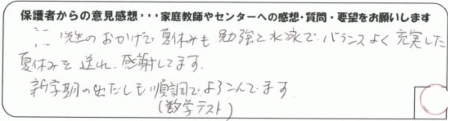 保護者からの意見感想･･･家庭教師やセンターへの感想・質問・要望をお願いします
先生のおかげで夏休みも勉強と水泳でバランスよく充実した
夏休みを送れ、感謝してます。
新学期の出だしも順調でよろこんでます
(数学テスト)